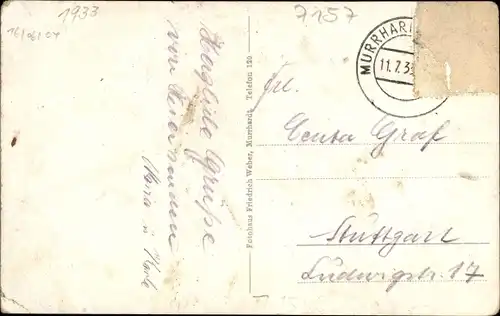 1933
16/061.04
7157
MURRHAR
11.7.3
Herzliche Grüße
von
Maria u.
Fotohaus Friedrich Weber, Murrhardt Telefon 120
Frl.
Centa Graf
Stuttgart
Ludwigstr. 17